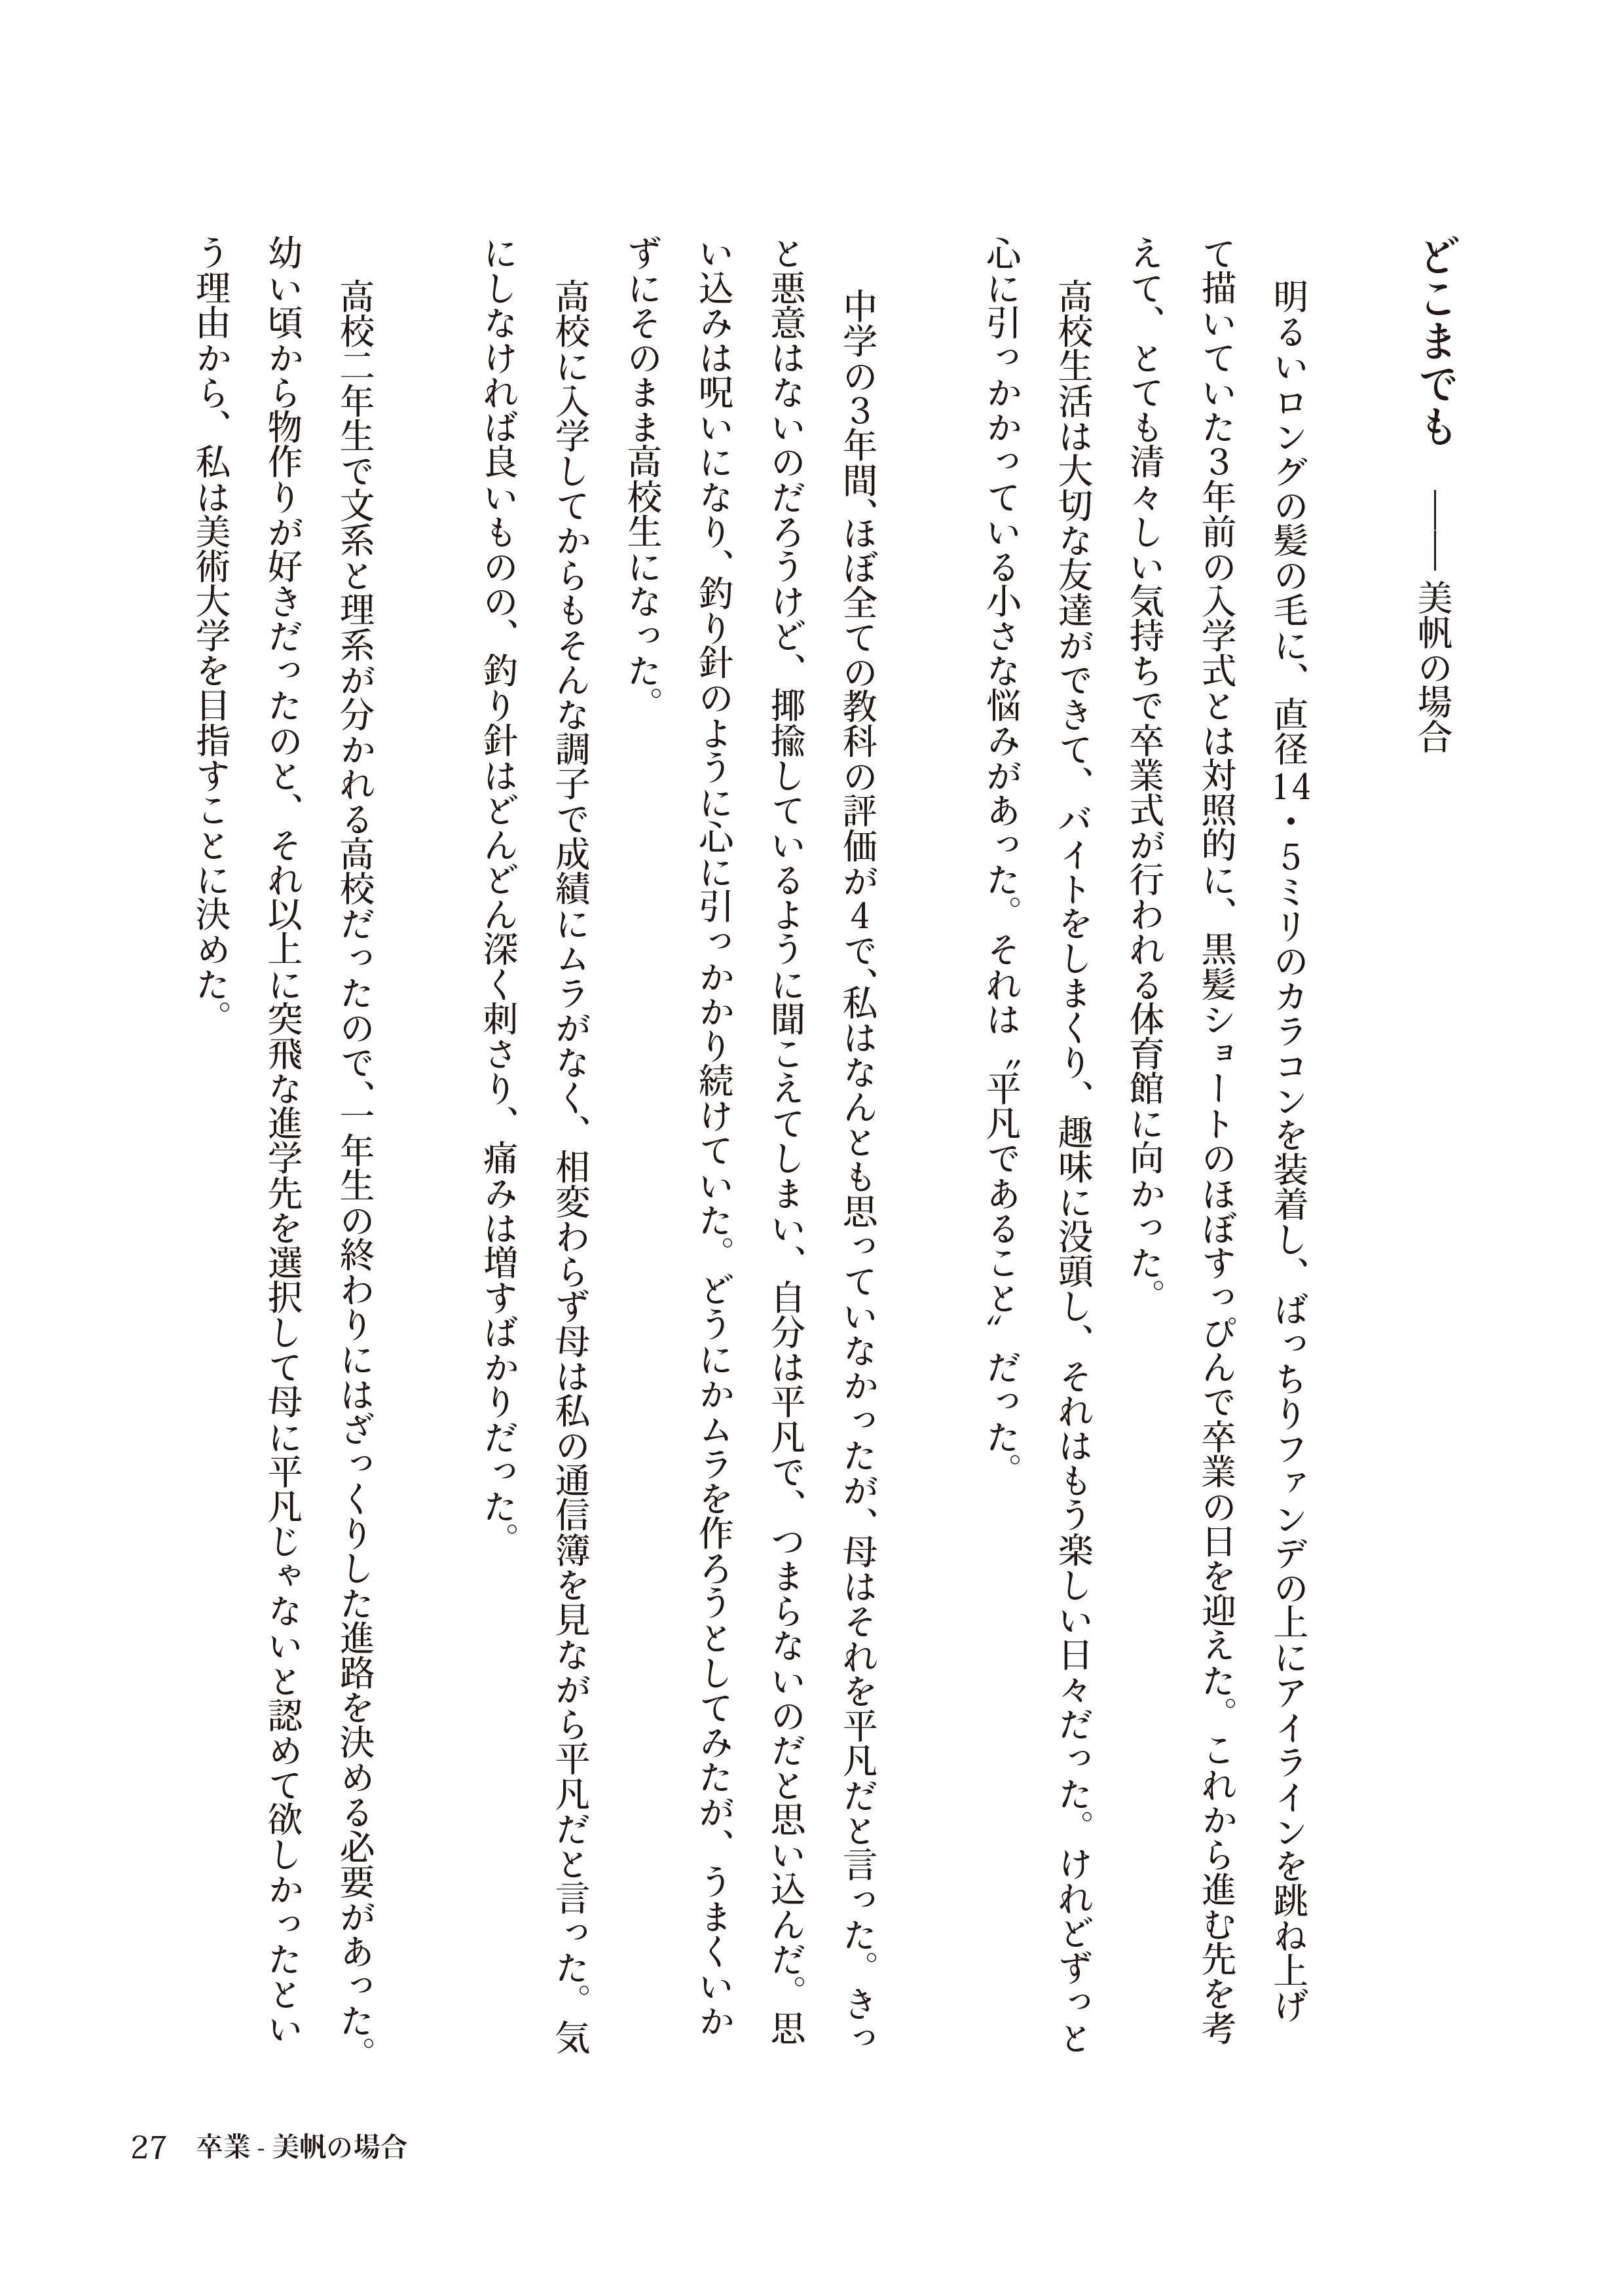 どこまでも　――美帆の場合
　明るいロングの髪の毛に、直径14・5ミリのカラコンを装着し、ばっちりファンデの上にアイラインを跳ね上げ
て描いていた3年前の入学式とは対照的に、黒髪ショートのほぼすっぴんで卒業の日を迎えた。これから進む先を考
えて、とても清々しい気持ちで卒業式が行われる体育館に向かった。
　高校生活は大切な友達ができて、バイトをしまくり、趣味に没頭し、それはもう楽しい日々だった。けれどずっと
心に引っかかっている小さな悩みがあった。それは〝平凡であること〟だった。
　中学の3年間、ほぼ全ての教科の評価が4で、私はなんとも思っていなかったが、母はそれを平凡だと言った。きっ
と悪意はないのだろうけど、揶揄しているように聞こえてしまい、自分は平凡で、つまらないのだと思い込んだ。思
い込みは呪いになり、釣り針のように心に引っかかり続けていた。どうにかムラを作ろうとしてみたが、うまくいか
ずにそのまま高校生になった。
　高校に入学してからもそんな調子で成績にムラがなく、相変わらず母は私の通信簿を見ながら平凡だと言った。気
にしなければ良いものの、釣り針はどんどん深く刺さり、痛みは増すばかりだった。
　高校二年生で文系と理系が分かれる高校だったので、一年生の終わりにはざっくりした進路を決める必要があった。
幼い頃から物作りが好きだったのと、それ以上に突飛な進学先を選択して母に平凡じゃないと認めて欲しかったとい
う理由から、私は美術大学を目指すことに決めた。
27　卒業 - 美帆の場合